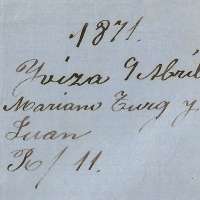 1871.
Yviza 9 Abril
Mariano Turq y
Juan
R/ 11.